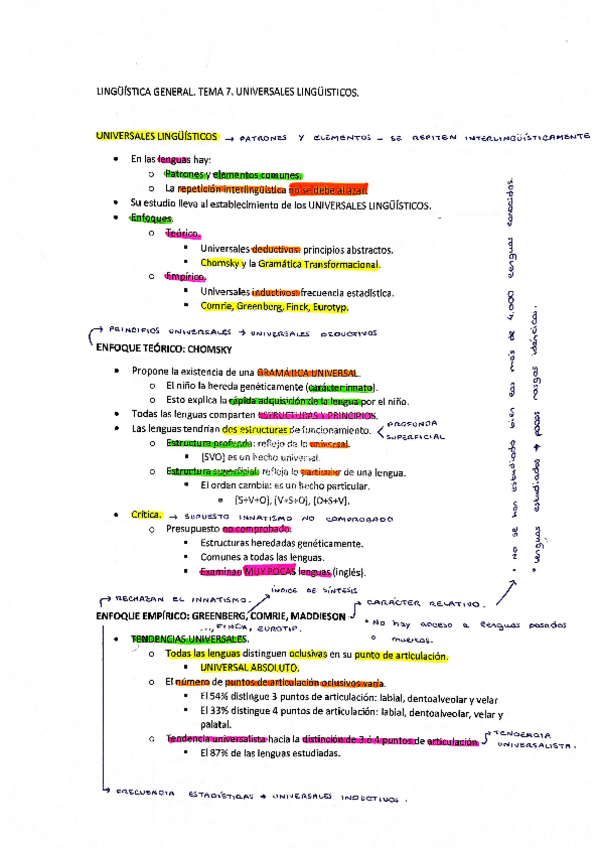 LINGÜÍSTICA GENERAL. TEMA 7. UNIVERSALES LINGÜISTICOS.
UNIVERSALES LINGÜÍSTICOS → PATRONES Y ELEMENTOS - SE REPITEN INTERLINGÜÍSTICAMENTE
• En las lenguas hay:
o Patrones y elementos comunes.
o La repetición interlingüística no se debe al azar.
• Su estudio lleva al establecimiento de los UNIVERSALES LINGÜÍSTICOS.
• Enfoques.
o Teórico.
▪ Universales deductivos: principios abstractos.
▪ Chomsky y la Gramática Transformacional.
o Empírico.
▪ Universales inductivos: frecuencia estadística.
▪ Comrie, Greenberg, Finck, Eurotyp.
→ PRINCIPIOS UNIVERSALES → UNIVERSALES DEDUCTIVOS
ENFOQUE TEÓRICO: CHOMSKY
• Propone la existencia de una GRAMÁTICA UNIVERSAL.
o El niño la hereda genéticamente (carácter innato).
o Esto explica la rápida adquisición de la lengua por el niño.
• Todas las lenguas comparten ESTRUCTURAS Y PRINCIPIOS.
• Las lenguas tendrían dos estructuras de funcionamiento. < PROFUNDA
SUPERFICIAL
o Estructura profunda: reflejo de lo universal.
▪ [SVO] es un hecho universal.
o Estructura superficial: refleja lo particular de una lengua.
▪ El orden cambia: es un hecho particular.
• [S+V+O], [V+S+O], [O+S+V].
• Crítica. → SUPUESTO INNATISMO NO COMPROBADO
o Presupuesto no comprobado.
▪ Estructuras heredadas genéticamente.
▪ Comunes a todas las lenguas.
▪ Examinan MUY POCAS lenguas (inglés).
→ RECHAZAN EL INNATISMO.
ÍNDICE DE SÍNTESIS
→ CARÁCTER RELATIVO.
ENFOQUE EMPÍRICO: GREENBERG, COMRIE, MADDIESON
..., FINCK, EUROTIP.
• No hay acceso a lenguas pasadas
o muertas.
• No se han estudiado bien las más de 4.000 lenguas conocidas.
• lenguas estudiadas → pocos rasgos idénticos.
• TENDENCIAS UNIVERSALES.
o Todas las lenguas distinguen oclusivas en su punto de articulación.
▪ UNIVERSAL ABSOLUTO.
o El número de puntos de articulación oclusivos varía.
▪ El 54% distingue 3 puntos de articulación: labial, dentoalveolar y velar
▪ El 33% distingue 4 puntos de articulación: labial, dentoalveolar, velar y
palatal.
o Tendencia universalista hacia la distinción de 3 ó 4 puntos de articulación
→ TENDENCIA
UNIVERSALISTA.
▪ El 87% de las lenguas estudiadas.
→ FRECUENCIA ESTADÍSTICAS → UNIVERSALES INDUCTIVOS.